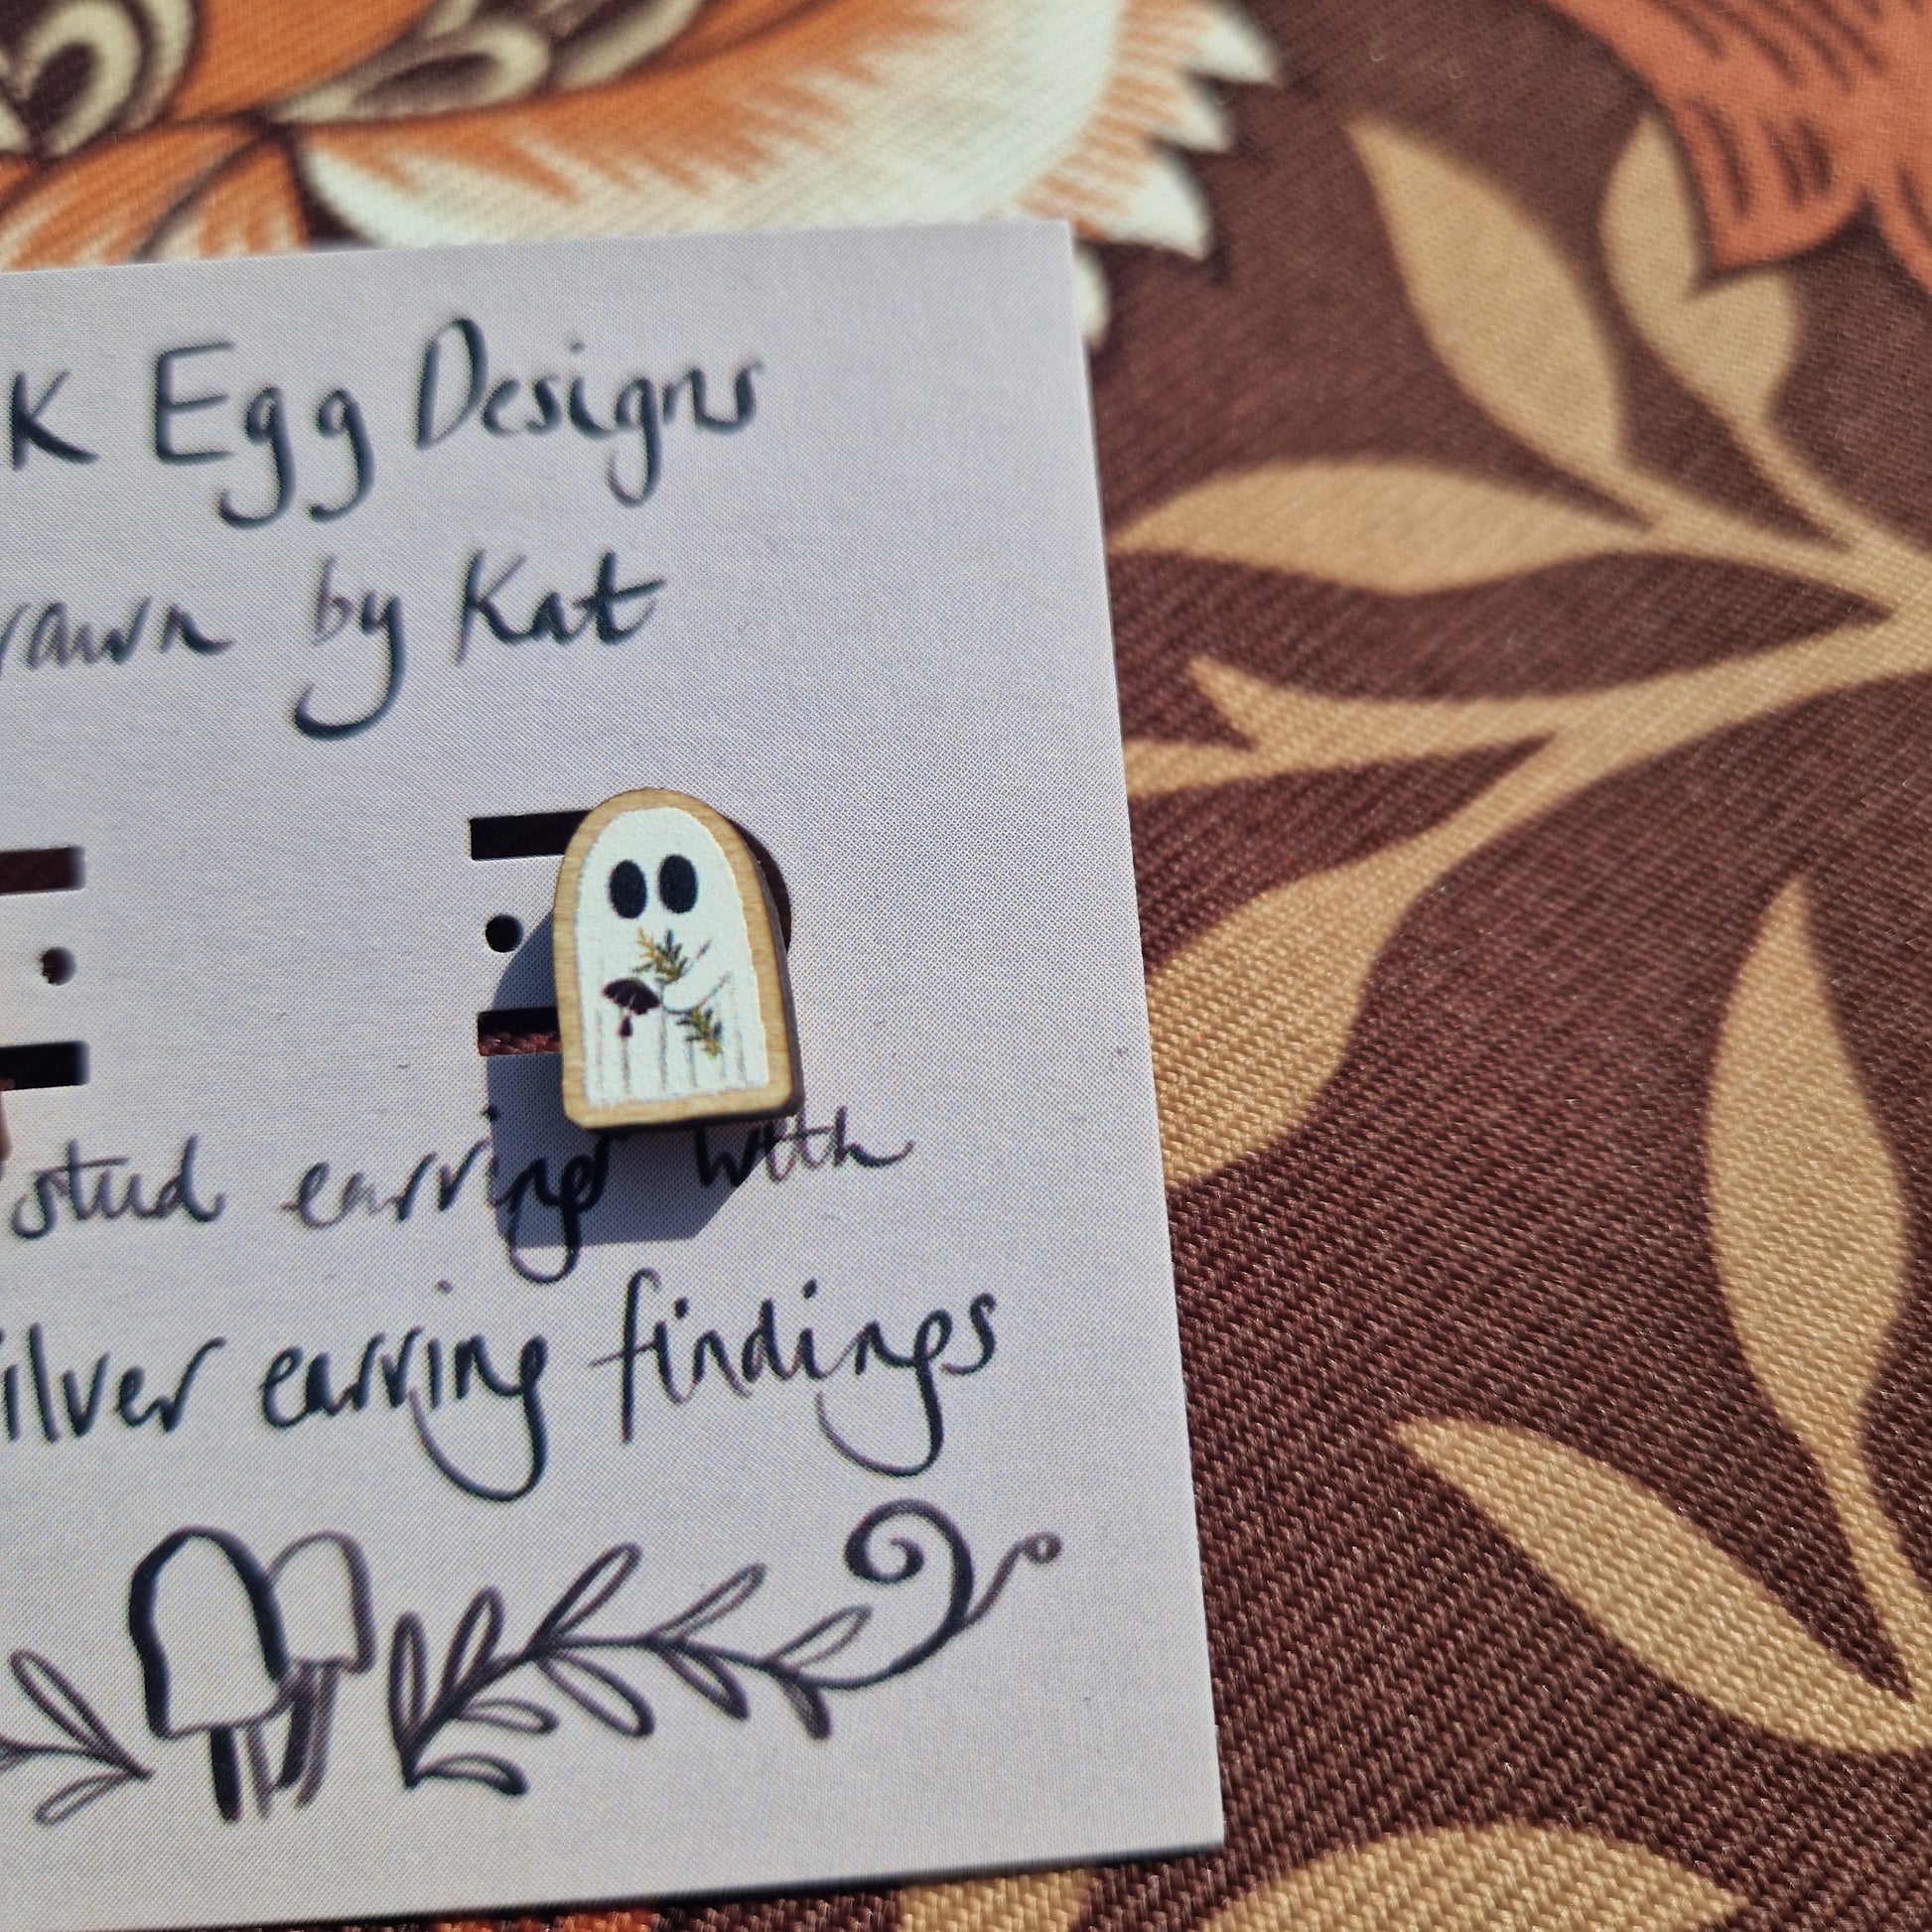 K Egg Designs
rawn by Kat
stud earrings with
ilver earring findings